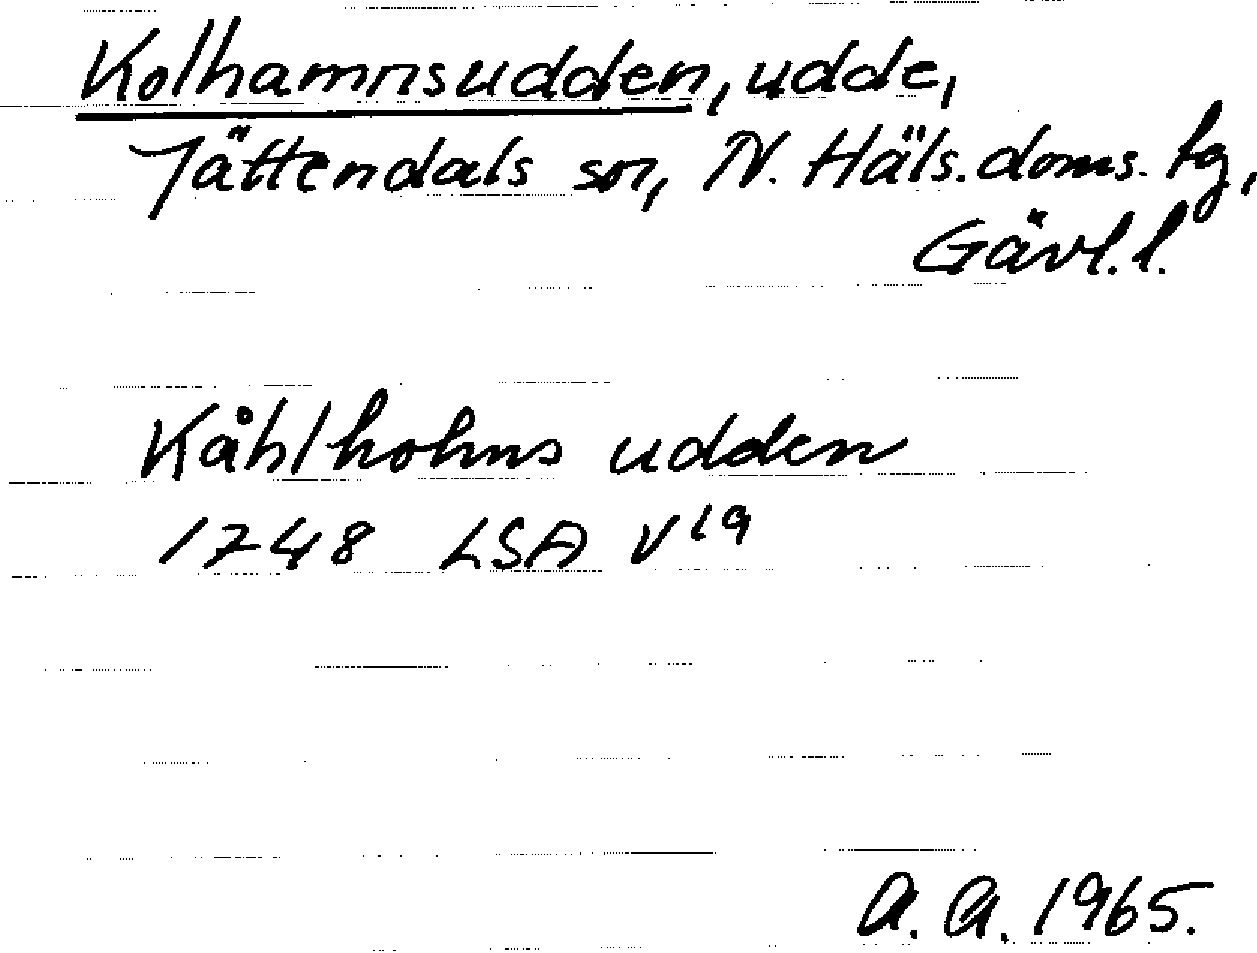 Kolhamnsudden, udde,
Jättendals sn, N. Häls. doms. fg,
Gävl. l.
Kåhlhohns udden
1748 LSA V19
A. A. 1965.